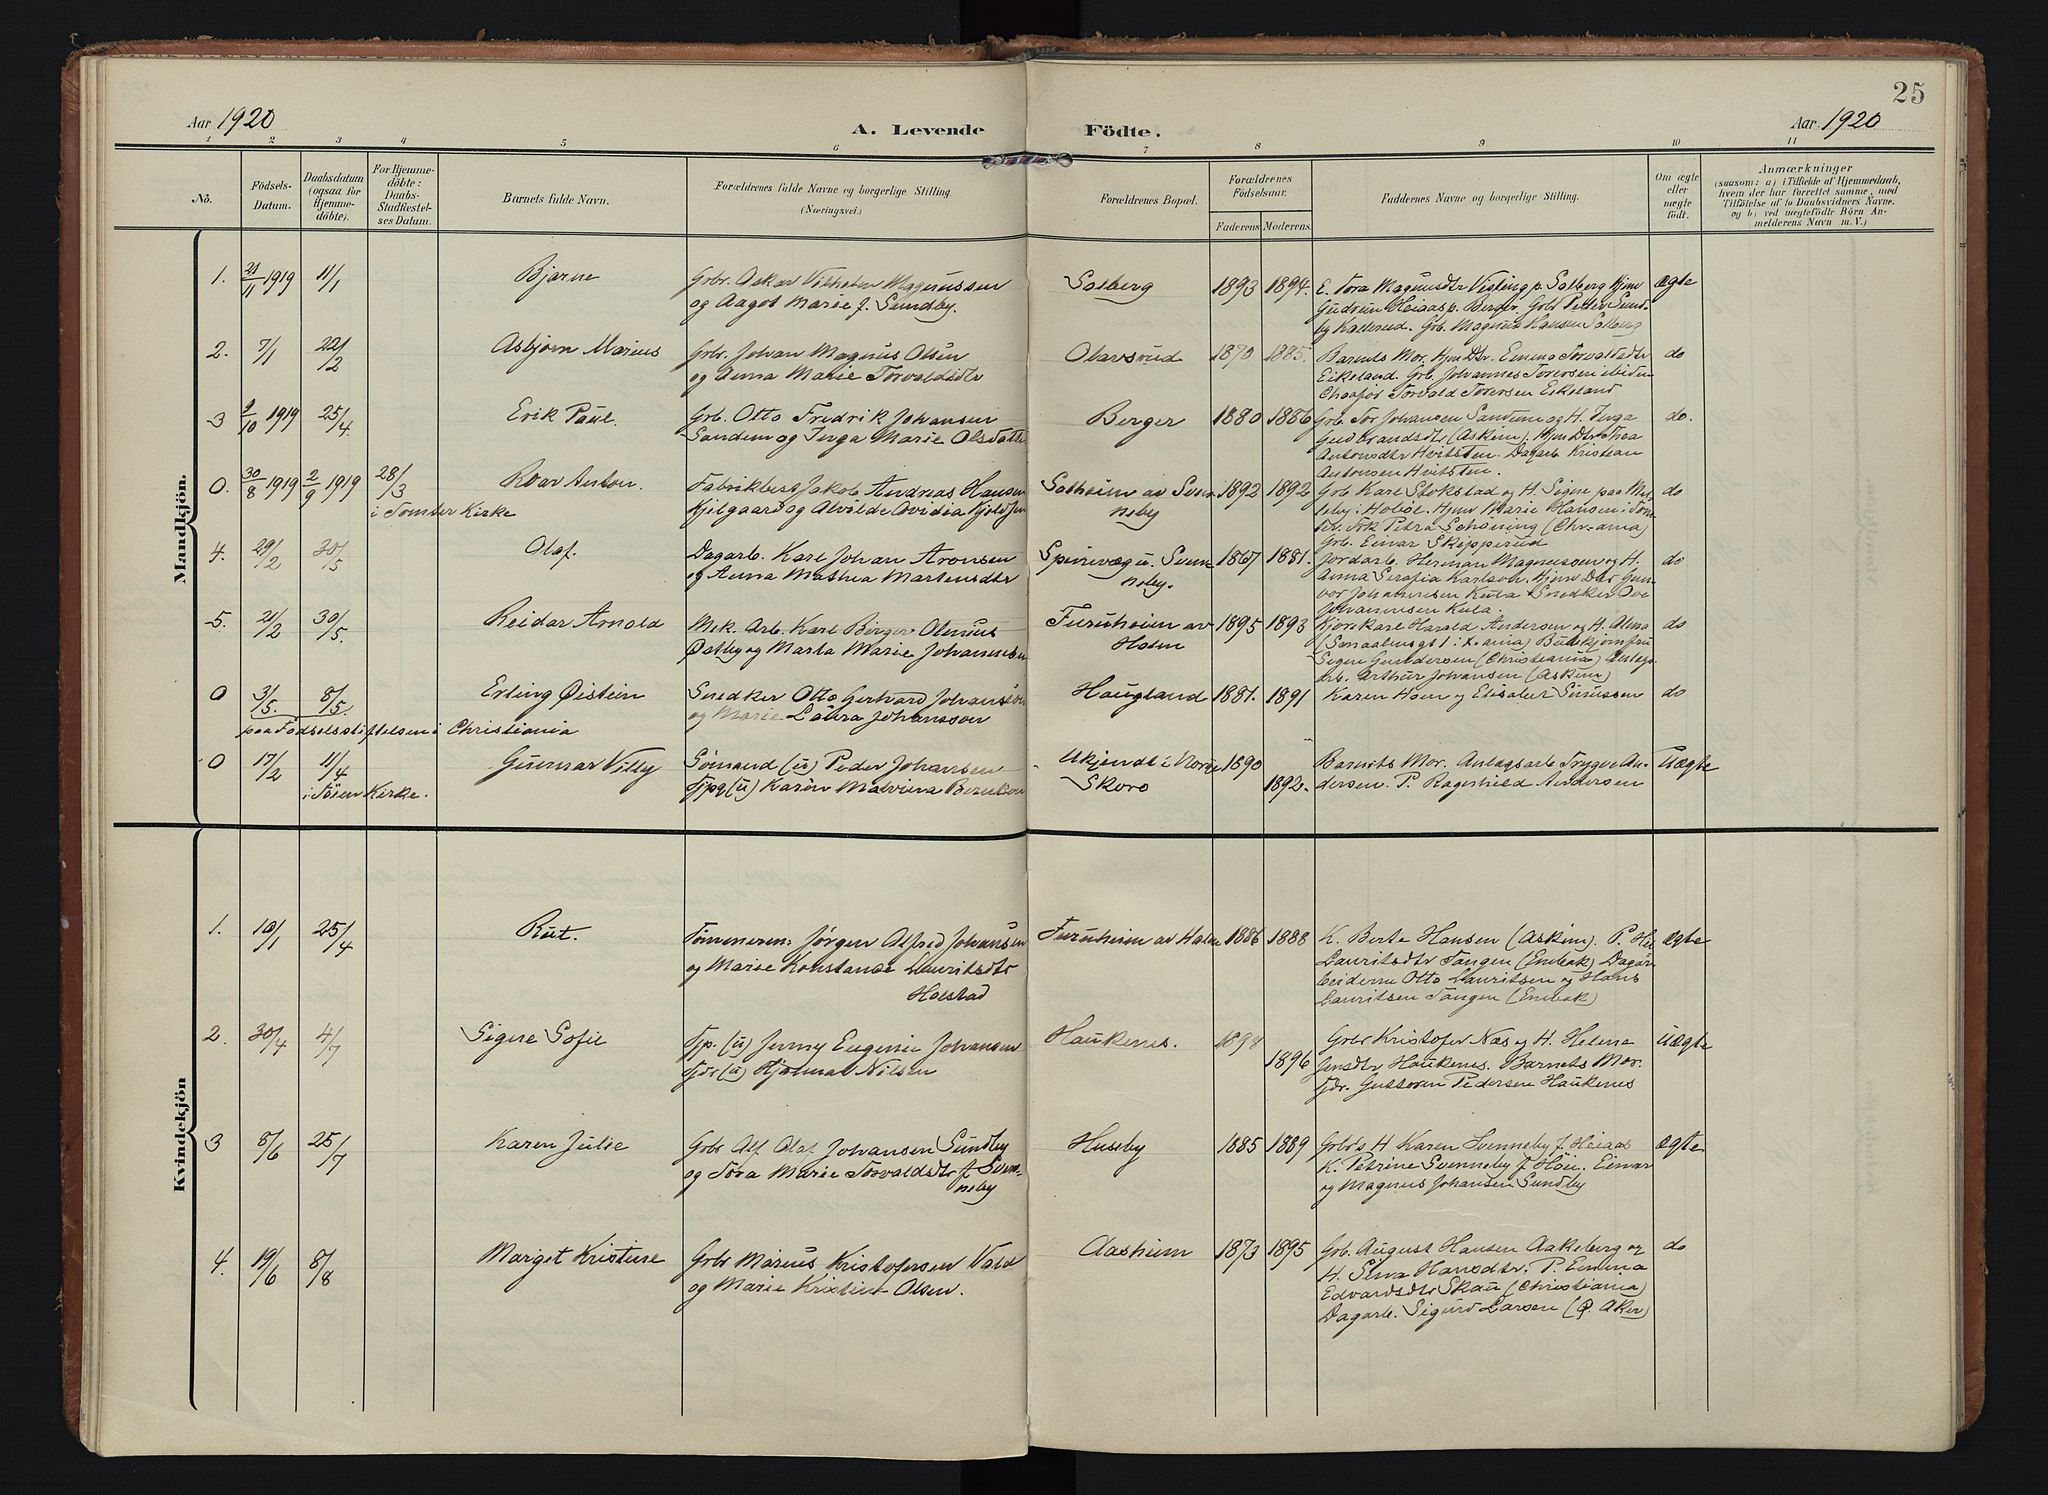 25
Aar 1920
A. Levende
Födte.
Aar 1920
1 2 3 4 5 6 7 8 9 10 11
No.
Födsels-
Datum.
Daabsdatum
(ogsaa for
Hjemme-
döbte).
For Hjemme-
döbte:
Daabs-
Stadfæstel-
ses Datum.
Barnets fulde Navn.
Forældrenes fulde Navne og borgerlige Stilling.
(Næringsvei.)
Forældrenes Bopæl.
Forældrenes
Födselsaar.
Faderens. Moderens.
Faddernes Navne og borgerlige Stilling.
Om ægte
eller
uægte
födt.
Anmærkninger
(saasom: a) i Tilfælde af Hjemmedaab,
hvem der har forrettet samme, med
Tilföielse af to Daabsvidners Navne,
og b) ved uægtefödte Börn An-
melderens Navn m. V.)
Mandkjön.
1. 21/11 1919 11/1 Bjarne
Grbr. Oskar Vilhelm Magnussen
og Aagot Marie f. Sundby.
Solberg 1893 1894.
E. Tora Magnusdtr Visling p. Solberg Hjmv
Gudrun Heiaas p. Berger. Grbr Petter Sund-
by Kallerud. Grb. Magnus Hansen Solberg
Ægte
2. 7/1 22/2 Asbjørn Marius
Grbr. Johan Magnus Olsen
og Anna Marie Torvaldsdtr
Olavsrud 1870 1885.
Barnets Mor. Hjm Dtr. Emma Torvaldsdtr
Eikeland. Grb. Johannes Toresen ibidem
Chaafør Torvald Toresen Eikeland
do
3 9/10 1919 25/4. Erik Paul.
Grb. Otto Fredrik Johansen
Sandem og Inga Marie Olsdatter
Berger 1880 1886
Grb Tor Johansen Sandem og H. Inga
Gudbrandsdtr (Askim). Hjm Dtr Thea
Antonsdtr Hvitsten. Dagarb Kristian
Antonsen Hvitsten.
do.
0. 30/8 1919 2/9 1919 28/3 Roar Anton.
i Tomter Kirke
Fabrikbest Jakob Andreas Hansen
Kjelgaard og Alvilde Ovidia
Solheim av Sven-
neby 1892 1892
Grb Karl Stokstad og H. Signe paa
i Hobøl. Hjmv Marie Hansen i Tom-
ter. Frk Petra Schøning (Chr.ania)
Grb. Einar Skipperud
do
4. 29/2 30/5 Olaf.
Dagarb. Karl Johan Aronsen
og Anna Mathea Martinsdtr
u. Sven-
neby. 1867 1881.
Jordarb. Herman Magnussen og H.
Anna Serafia Karlson. Hjmv Dtr Gun-
vor Johannesen Kula Snedker Ove
Johannesen Kula.
do
5. 21/2 30/5. Reidar Arnold
Mek. Arb. Karl Birger Olenius
Østby og Marta Marie Johannesen
Furuheim av
Holm 1895 1893
Kjørekarl Harald Andersen og H. Alma
(Smaalensgt 1 i X.ania) Budeiejomfru
Signe Gundersen (Christiania) Anlegs-
arb. Arthur Johansen (Askim)
do
0 3/5. 8/5. Erling Øistein
paa Fødselsstiftelsen i Christiania
Snedker Otto Gerhard Johansson
og Marie Laura Johansson
Haugland 1881. 1891
Karen Hoen og Elisabet Simensen
do
0 17/2 11/4 Gunnar Villy
i Tøien Kirke.
Sømand (u) Peder Johansen
Tjpg (u) Karen Malvina
Ukjendt i Norge 1890
Skoro 1892.
Barnets Mor. Anlagsarb Trygve An-
dersen. P. Ragnhild Andersen
Uægte
Kvindekjön
1. 10/1 25/4 Rut.
Tømmerm: Jørgen Alfred Johansen
og Marie Konstanse Lauritsdtr
Holstad
Furuheim av Holm 1886 1888
K. Berte Hansen (Askim). P.
Lauritsdtr Tangen (Enebak) Dagar-
beiderne Otto Lauritsen og Hans
Lauritsen Tangen (Enebak)
Ægte
2. 30/4 4/7 Signe Sofie
Tjp. (u) Jenny Eugenie Johansen
Tjdr (u) Hjalmar Nilsen
Haukenes. 1898
1896
Grbr Kristofer Næs og H. Helena
Jensdtr Haukenes. Barnets Mor.
Tjdr. Gustoren Pedersen Haukenes
Uægte
3 8/6 25/7 Karen Julie
Grbr Alf Olaf Johansen Sundby
og Tora Marie Torvaldsdtr f. Sven-
neby
Huseby 1885 1889
Grbr's H Karen Svenneby f. Heiaas
K. Petrine Svenneby f. Høie. Einar
og Magnus Johansen Sundby
Ægte
4. 19/6 8/8 Marget Kristine
Grbr Marius Kristofersen Vald
og Marie Kristine Olsen.
Aasheim 1873 1895
Grb. August Hansen Aakeberg og
H. Elna Hansdtr. P. Emma
Edvardsdtr Skau (Christiania)
Dagarb. Sigurd Larsen (Ø. Aker)
do